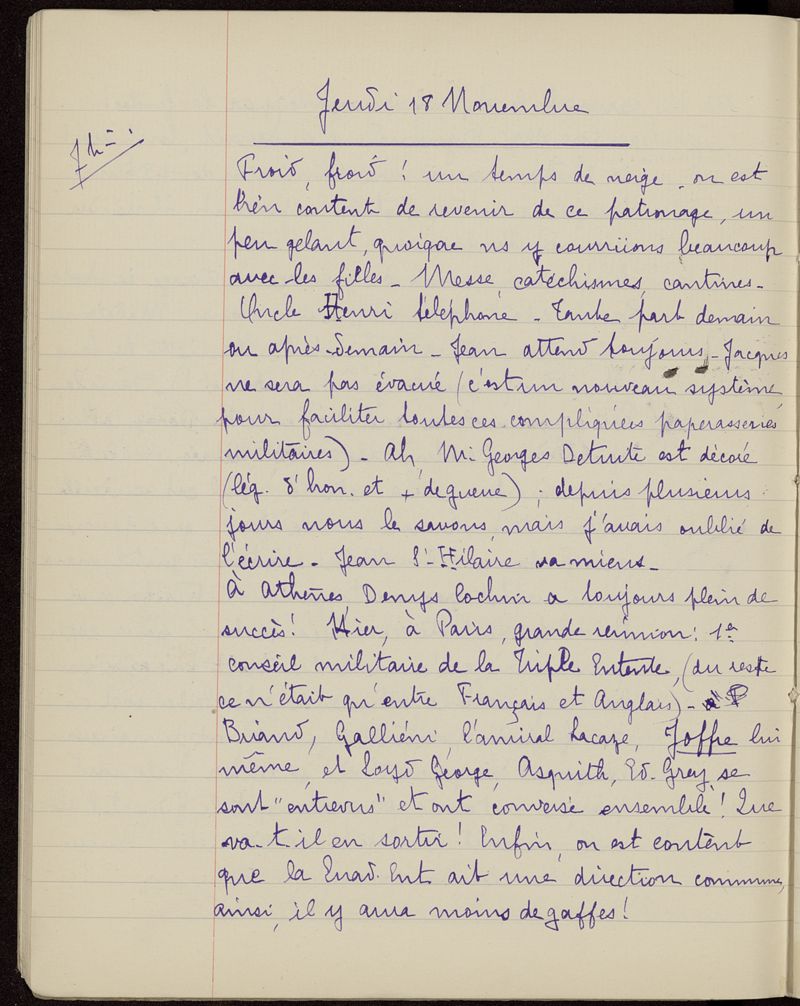 Jeudi 18 Novembre
7h=.
Froid, froid ! un temps de neige. on est
bien content de revenir de ce patronage, un
peu gelant, quoique ns y courriions beaucoup
avec les filles _ Messe, catéchismes, cantines _
Oncle Henri téléphone _ Tante part demain
ou après-demain _ Jean attend toujours _ Jacques
ne sera pas évacué (c'est un nouveau système
pour faciliter toutes ces compliquées paperasseries
militaires) _ Ah, Mr Georges est décoré
(lég. d'hon. et + de guerre) ; depuis plusieurs
jours nous le savons, mais j'avais oublié de
l'écrire _ Jean St Hilaire va mieux _
À Athènes, Denys Cochin a toujours plein de
succès ! Hier, à Paris, grande réunion : 1er
conseil militaire de la Triple Entente, (du reste
ce n'était qu'entre Français et Anglais) _
Briand, Galliéni, l'amiral Lacaze, Joffre lui
même, et Loyd George, Asquith, Ed. Grey, se
sont "entrevus" et ont conversé ensemble ! Que
va-t-il en sortir ! Enfin, on est content
que la Quad. Ent. ait une direction commune,
ainsi, il y aura moins de gaffes !